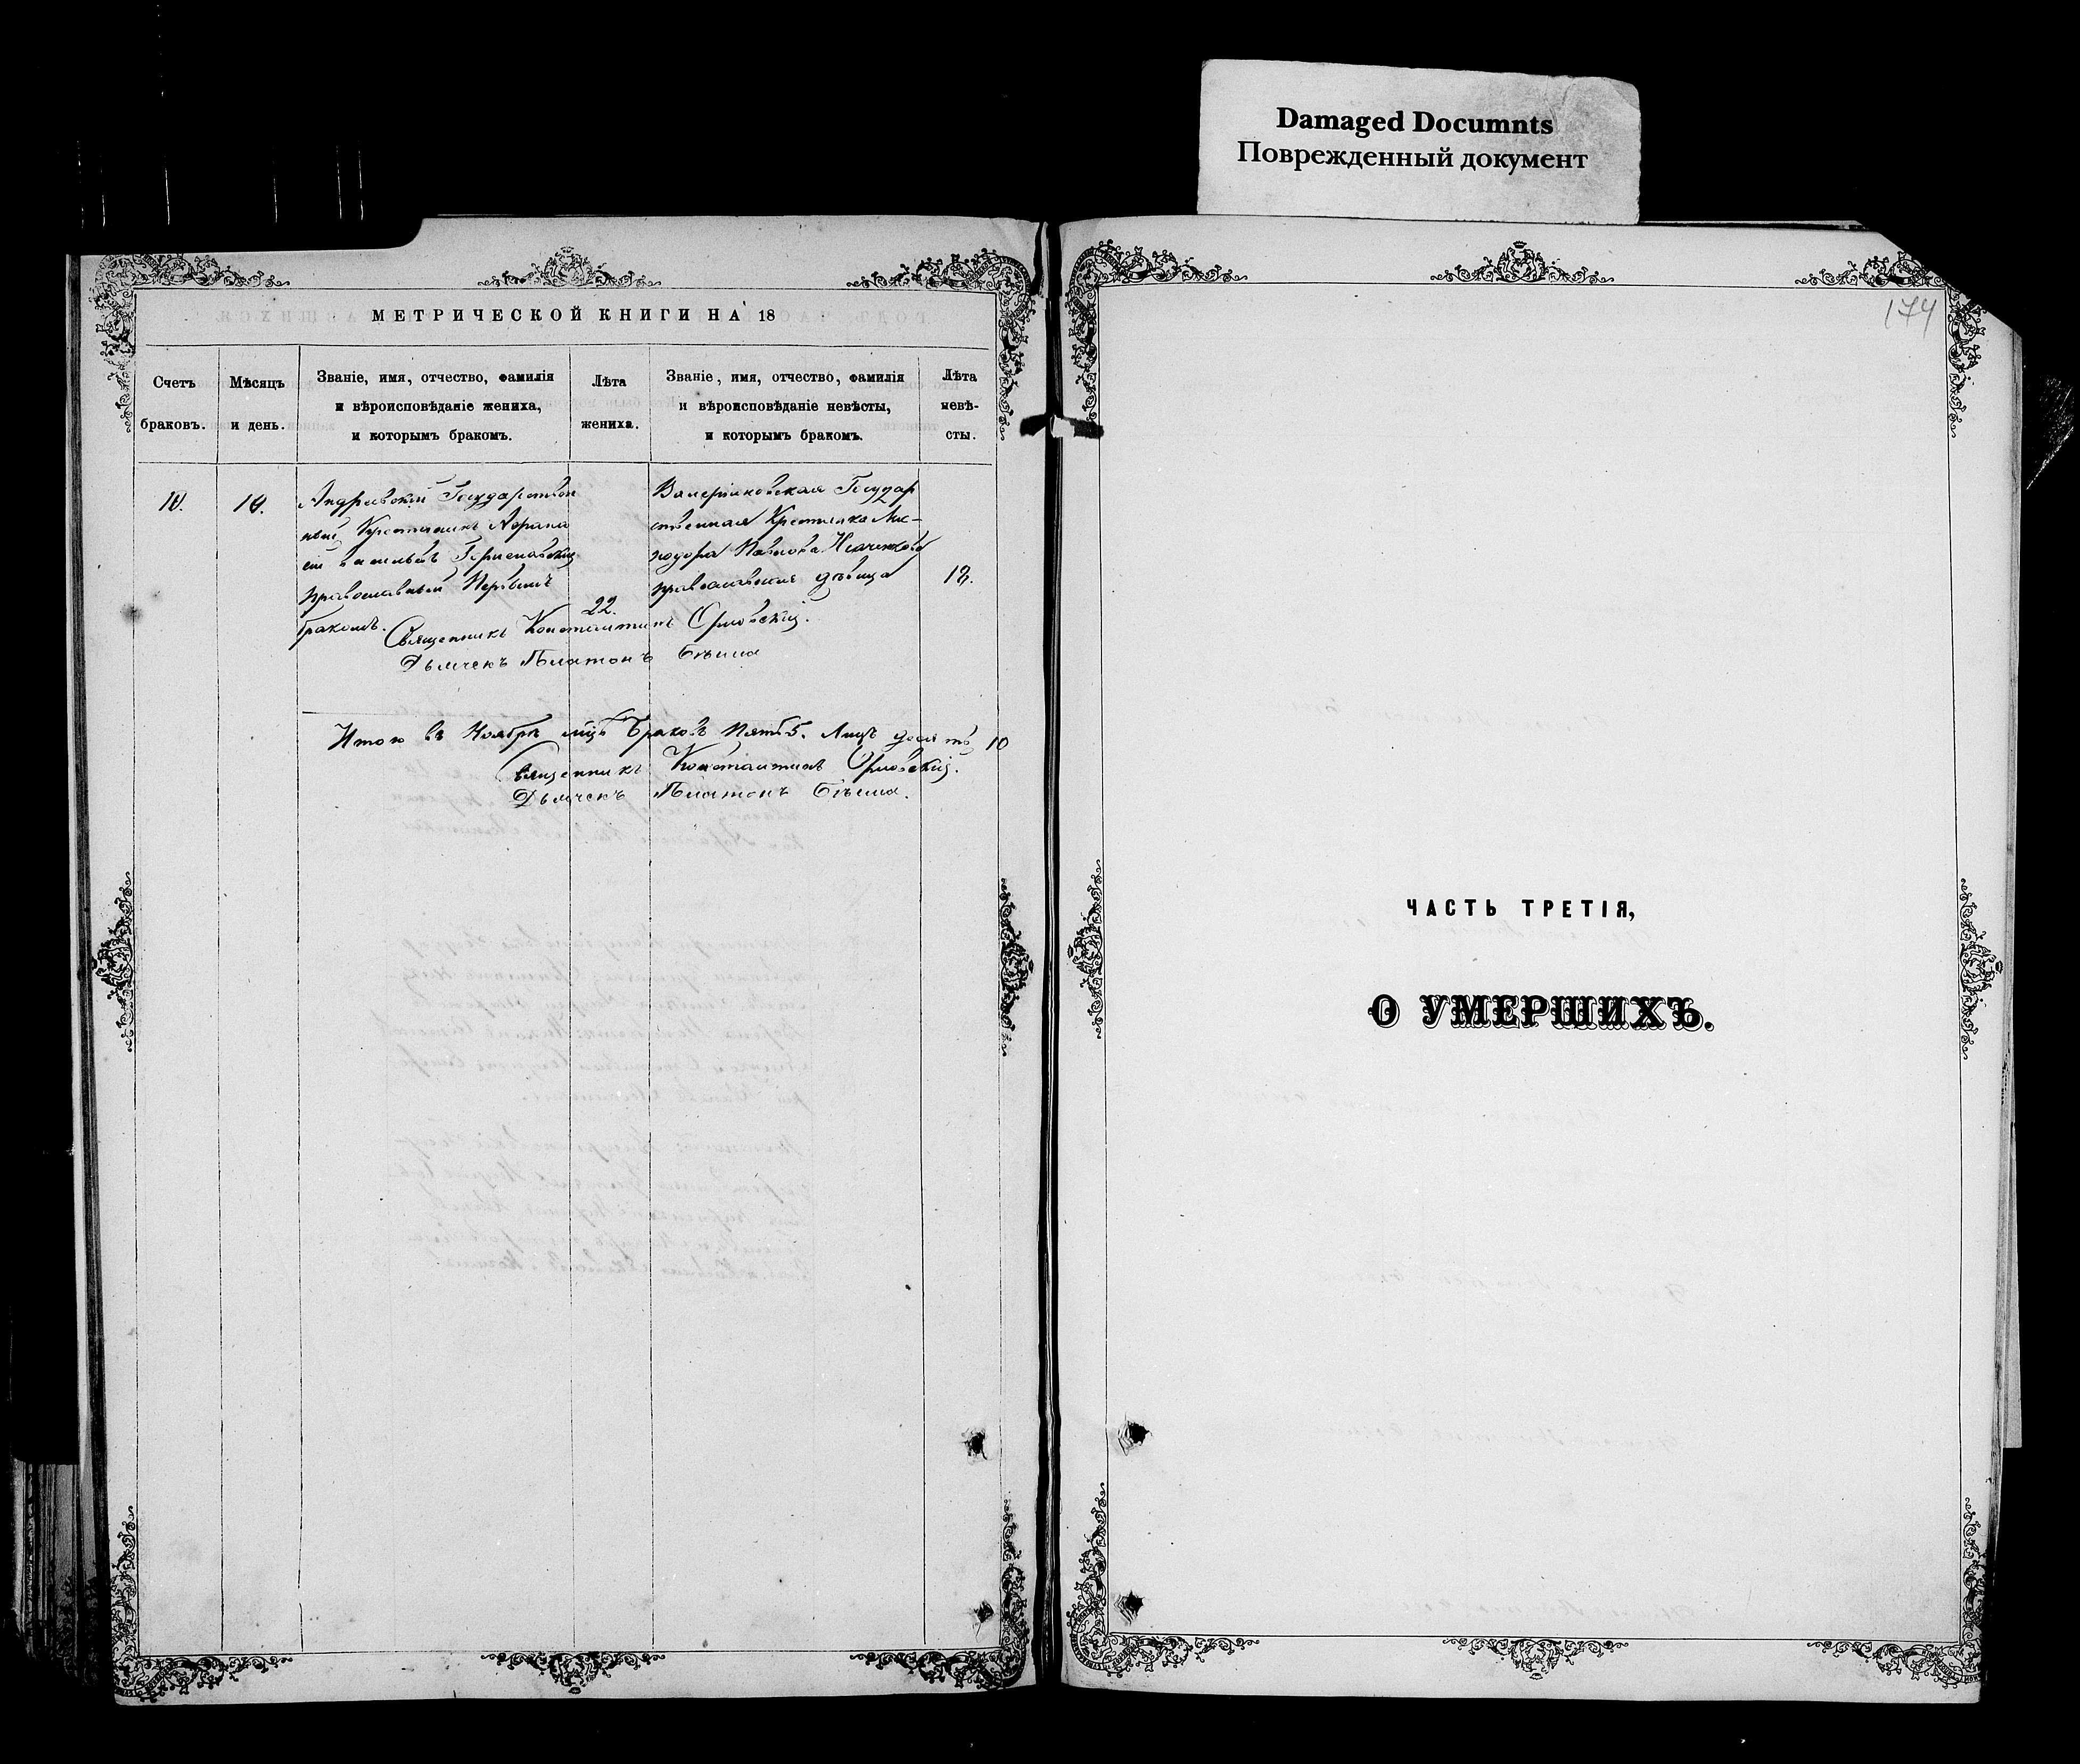 Damaged Documnts
Поврежденный документ
МЕТРИЧЕСКОЙ КНИГИ НА 18
Счетъ
браковъ.
Мѣсяцъ
и день.
Званіе, имя, отчество, фамилія
и вѣроисповѣданіе жениха,
и которымъ бракомъ.
Лѣта
жениха.
Званіе, имя, отчество, фамилія
и вѣроисповѣданіе невѣсты,
и которымъ бракомъ.
Лѣта
невѣ-
сты.
10.
Андреевскій Государствен
ный Крестьянинъ
Васильевъ
православный Первымъ
бракомъ.
22.
Государ
ственная Крестьянка
Павлова
православная дѣвица
18.
Священникъ Константинъ Орловскій.
Дьячекъ Платонъ
Итого въ Ноябрѣ мцѣ Браковъ Пять 5. Лицъ десять 10
Священникъ Константинъ Орловскій.
Дьячекъ Платонъ
174
ЧАСТЬ ТРЕТІЯ,
О УМЕРШИХЪ.